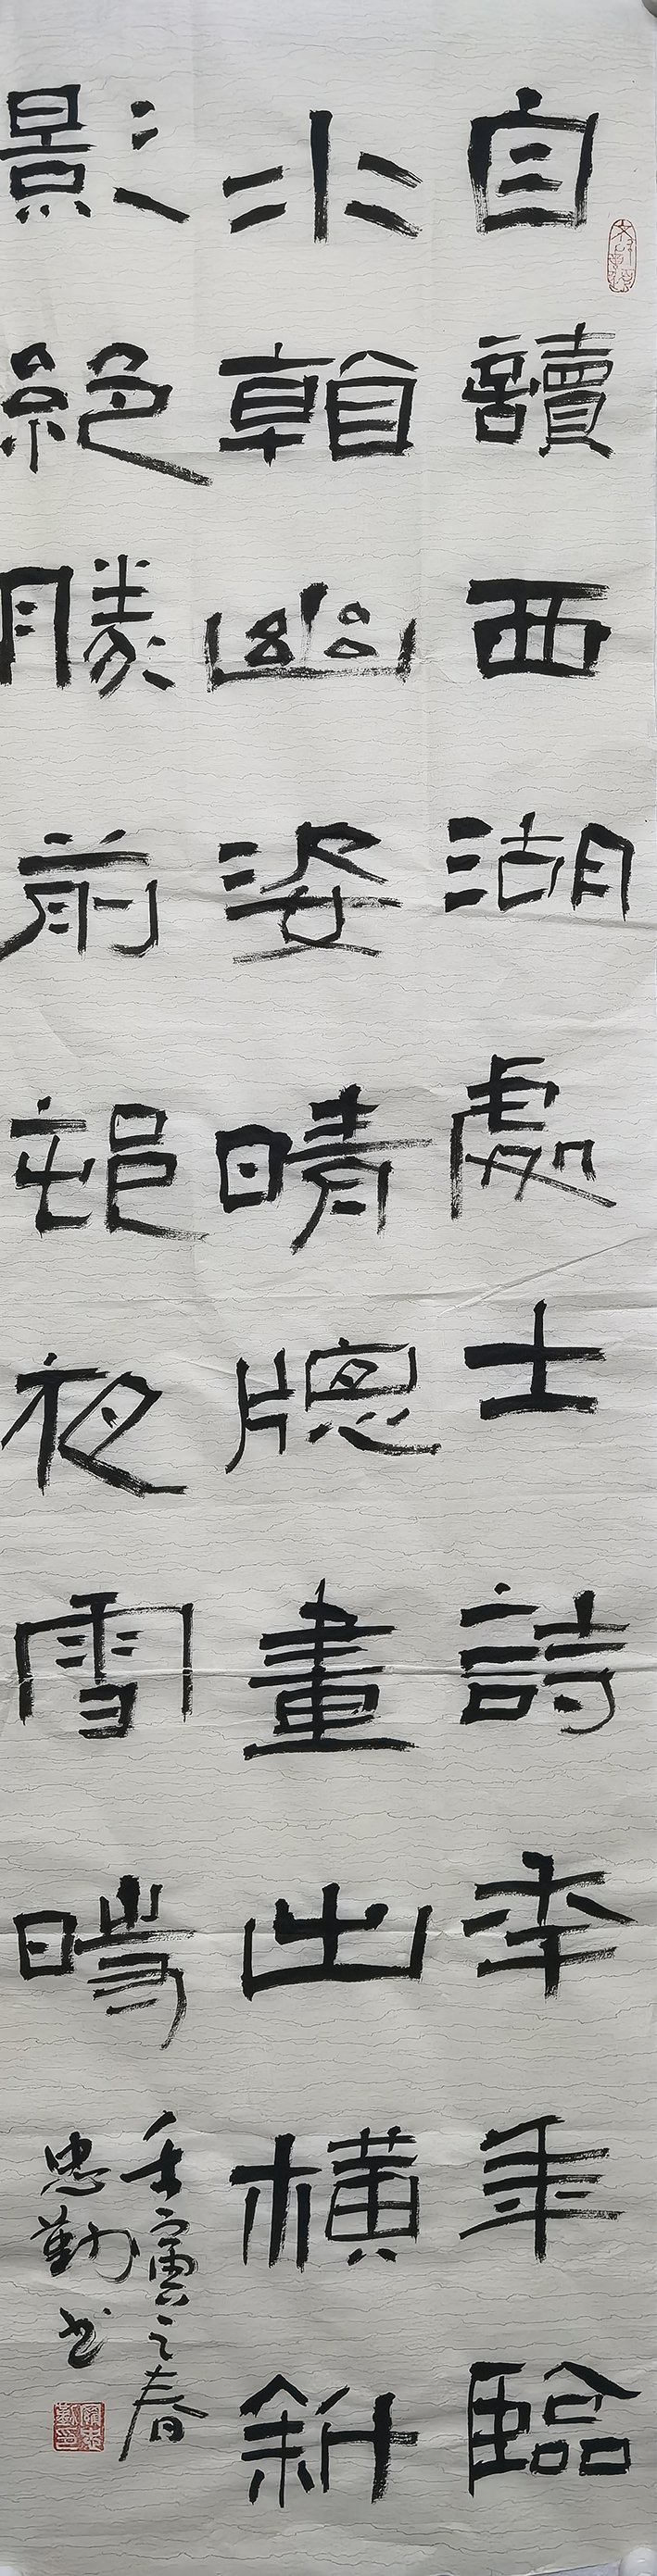 自讀西湖處士詩秊年臨
水看幽姿晴牕畫出橫斜
影絕勝前邨夜雪時
壬寅之春
忠勤书